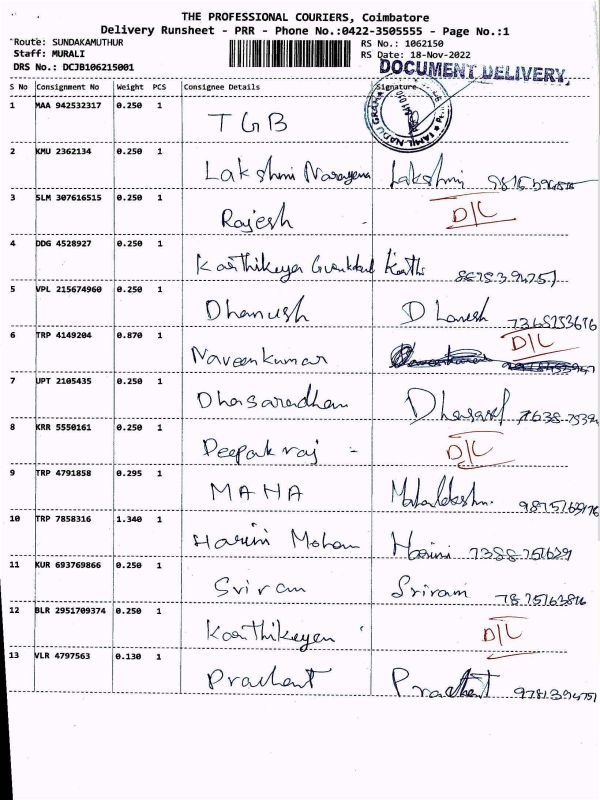 THE PROFESSIONAL COURIERS, Coimbatore
Delivery Runsheet - PRR - Phone No.:0422-3505555 - Page No.:1
Route: SUNDAKAMUTHUR RS No.: 1062150
Staff: MURALI RS Date: 18-Nov-2022
DRS No.: DCJB106215001
DOCUMENT DELIVERY
S No Consignment No Weight PCS Consignee Details Signature
1 MAA 942532317 0.250 1 TGB
TAMIL NADU GRAM
2 KMU 2362134 0.250 1 Lakshmi Narayana Lakshmi
3 SLM 307616515 0.250 1 Rajesh D/L
4 DDG 4528927 0.250 1 Karthikeyan Karthi
5 VPL 215674960 0.250 1 Dhanush Dhanush 7368153676
6 TRP 4149204 0.870 1 Naveenkumar D/L
7 UPT 2105435 0.250 1 Dhasaradhan
8 KRR 5550161 0.250 1 Deepak raj - D/L
9 TRP 4791858 0.295 1 MAHA Mahalakshmi
10 TRP 7858316 1.340 1 Harini Mohan Harini 7388751639
11 KUR 693769866 0.250 1 Sriram Sriram
12 BLR 2951709374 0.250 1 Karthikeyan D/L
13 VLR 4797563 0.130 1 Prashant Prashant 9781394751